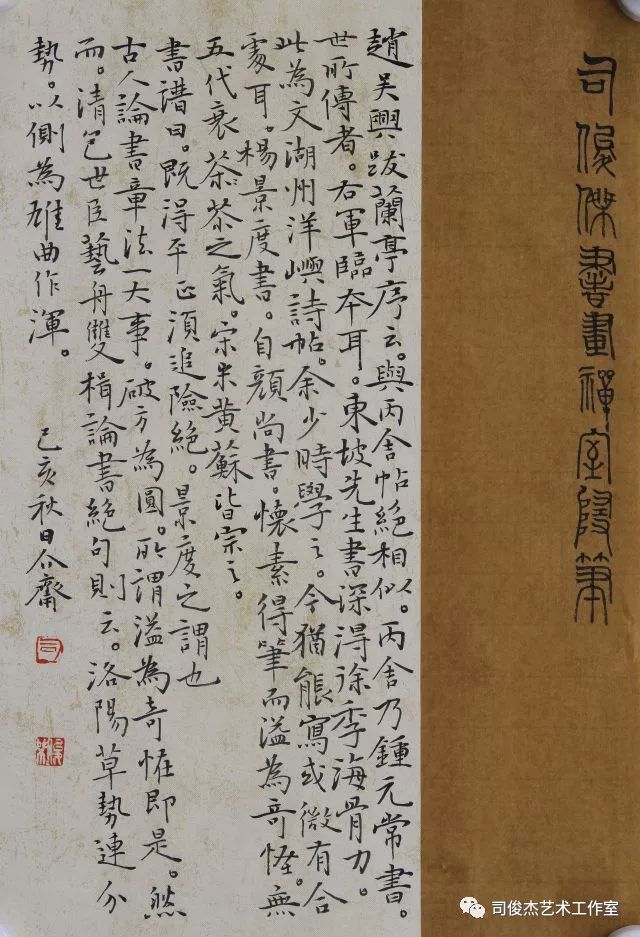 司俊傑書畫禪室隨筆
趙吳興跋蘭亭序云。與丙舍帖絕相似。丙舍乃鍾元常書。
世所傳者。右軍臨本耳。東坡先生書深得徐季海骨力。
此為文湖州洋嶼詩帖。余少時學之。今猶能寫或微有合
處耳。楊景度書。自顏尚書。懷素得筆而溢為奇怪。無
五代衰茶茶之氣。宋米黃蘇皆宗之。
書譜曰。既得平正須追險絕。景度之謂也
古人論書章法一大事。破方為圓。所謂溢為奇怪即是。然
而。清包世臣藝舟雙楫論書絕句則云。洛陽草勢連分
勢。以側為雄曲作渾。
己亥秋日介齋
司
司俊杰艺术工作室